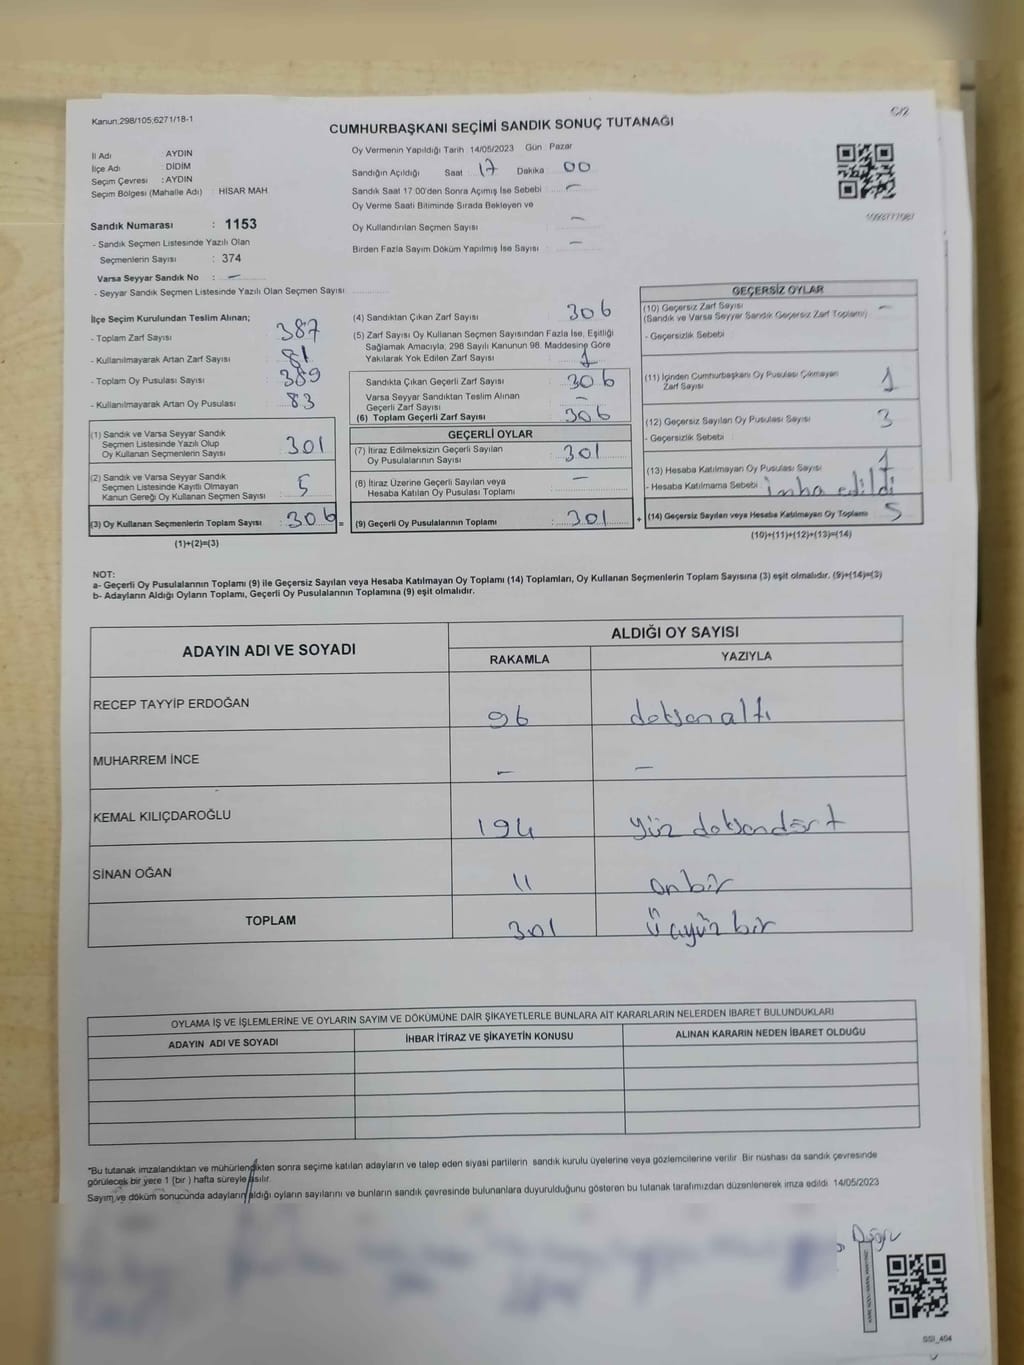 Kanun,298/105;6271/18-1
C/2
CUMHURBAŞKANI SEÇİMİ SANDIK SONUÇ TUTANAĞI
İl Adı : AYDIN
İlçe Adı : DİDİM
Seçim Çevresi : AYDIN
Seçim Bölgesi (Mahalle Adı) : HİSAR MAH
Oy Vermenin Yapıldığı Tarih 14/05/2023 Gün Pazar
Sandığın Açıldığı Saat 17 Dakika 00
Sandık Saat 17 00'den Sonra Açımış İse Sebebi : –
Oy Verme Saati Bitiminde Sırada Bekleyen ve
Oy Kullandırılan Seçmen Sayısı –
Birden Fazla Sayım Döküm Yapılmış İse Sayısı –
Sandık Numarası : 1153
- Sandık Seçmen Listesinde Yazılı Olan
Seçmenlerin Sayısı : 374
Varsa Seyyar Sandık No : –
- Seyyar Sandık Seçmen Listesinde Yazılı Olan Seçmen Sayısı
İlçe Seçim Kurulundan Teslim Alınan;
- Toplam Zarf Sayısı 387
- Kullanılmayarak Artan Zarf Sayısı 81
- Toplam Oy Pusulası Sayısı 389
- Kullanılmayarak Artan Oy Pusulası 83
(1) Sandık ve Varsa Seyyar Sandık
Seçmen Listesinde Yazılı Olup
Oy Kullanan Seçmenlerin Sayısı 301
(2) Sandık ve Varsa Seyyar Sandık
Seçmen Listesinde Kayıtlı Olmayan
Kanun Gereği Oy Kullanan Seçmen Sayısı 5
(3) Oy Kullanan Seçmenlerin Toplam Sayısı 306 =
(1)+(2)=(3)
(4) Sandıktan Çıkan Zarf Sayısı 306
(5) Zarf Sayısı Oy Kullanan Seçmen Sayısından Fazla İse, Eşitliği
Sağlamak Amacıyla; 298 Sayılı Kanunun 98. Maddesine Göre
Yakılarak Yok Edilen Zarf Sayısı 1
Sandıkta Çıkan Geçerli Zarf Sayısı 306
Varsa Seyyar Sandıktan Teslim Alınan
Geçerli Zarf Sayısı –
(6) Toplam Geçerli Zarf Sayısı 306
GEÇERLİ OYLAR
(7) İtiraz Edilmeksizin Geçerli Sayılan
Oy Pusulalarının Sayısı 301
(8) İtiraz Üzerine Geçerli Sayılan veya
Hesaba Katılan Oy Pusulası Toplamı –
(9) Geçerli Oy Pusulalarının Toplamı 301 +
GEÇERSİZ OYLAR
(10) Geçersiz Zarf Sayısı –
(Sandık ve Varsa Seyyar Sandık Geçersiz Zarf Toplamı)
- Geçersizlik Sebebi
(11) İçinden Cumhurbaşkanı Oy Pusulası Çıkmayan
Zarf Sayısı 1
(12) Geçersiz Sayılan Oy Pusulası Sayısı 3
- Geçersizlik Sebebi :
(13) Hesaba Katılmayan Oy Pusulası Sayısı 1
- Hesaba Katılmama Sebebi : imha edildi
(14) Geçersiz Sayılan veya Hesaba Katılmayan Oy Toplamı 5
(10)+(11)+(12)+(13)=(14)
NOT:
a- Geçerli Oy Pusulalarının Toplamı (9) ile Geçersiz Sayılan veya Hesaba Katılmayan Oy Toplamı (14) Toplamları, Oy Kullanan Seçmenlerin Toplam Sayısına (3) eşit olmalıdır. (9)+(14)=(3)
b- Adayların Aldığı Oyların Toplamı, Geçerli Oy Pusulalarının Toplamına (9) eşit olmalıdır.
ADAYIN ADI VE SOYADI
ALDIĞI OY SAYISI
RAKAMLA YAZIYLA
RECEP TAYYİP ERDOĞAN 96 doksanaltı
MUHARREM İNCE – –
KEMAL KILIÇDAROĞLU 194 yüz doksandört
SİNAN OĞAN 11 onbir
TOPLAM 301 üçyüz bir
OYLAMA İŞ VE İŞLEMLERİNE VE OYLARIN SAYIM VE DÖKÜMÜNE DAİR ŞİKAYETLERLE BUNLARA AİT KARARLARIN NELERDEN İBARET BULUNDUKLARI
ADAYIN ADI VE SOYADI İHBAR İTİRAZ VE ŞİKAYETİN KONUSU ALINAN KARARIN NEDEN İBARET OLDUĞU
*Bu tutanak imzalandıktan ve mühürlendikten sonra seçime katılan adayların ve talep eden siyasi partilerin sandık kurulu üyelerine veya gözlemcilerine verilir. Bir nüshası da sandık çevresinde
görülecek bir yere 1 (bir ) hafta süreyle asılır.
Sayım ve döküm sonucunda adayların aldığı oyların sayılarını ve bunların sandık çevresinde bulunanlara duyurulduğunu gösteren bu tutanak tarafımızdan düzenlenerek imza edildi. 14/05/2023
Doğru
SSI_404